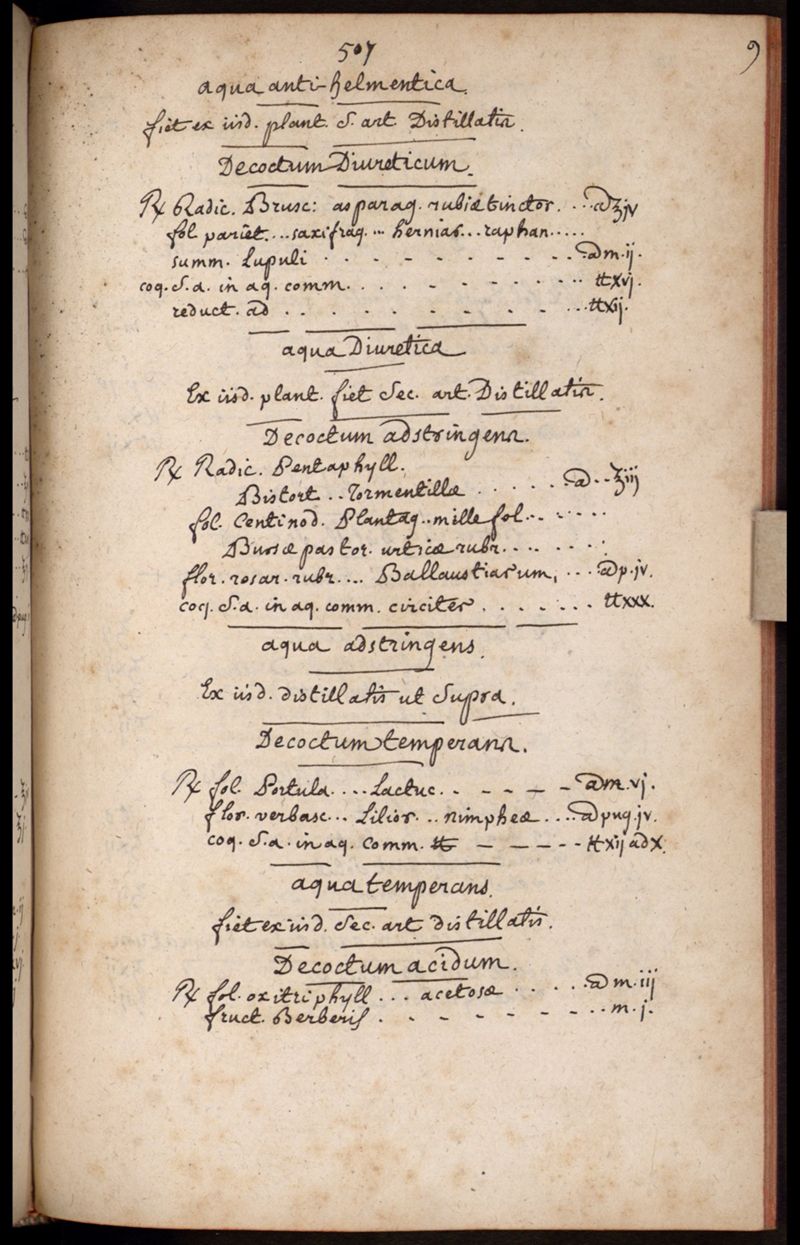 507
9
aqua anti-helmentica.
fiet ex iisd. plant. S. art Distillatis.
Decoctum Diureticum.
℞ Radic. Brusc: asparag. rubiæ tinctor. . . . a ʒjv
fol pariet. . . saxifrag. . . hernias. . . raphan. . . . .
summ. Lupuli . . - - - - - - - . . a m. ij.
coq. S. a. in aq. comm. . . . - - - - . . . ℔xvj.
reduct. ad . . . - - - - - . . . ℔xij.
aqua Diuretica
Ex iisd. plant. fiet Sec. art. Distillatis.
Decoctum adstringens.
℞ Radic. Pentaphyll.
Bistort . . Tormentillæ . . . . . . a . . ʒiij
fol. Centinod. Plantag. . mille fol. . . - . . .
Bursæ pastor. urticæ rubr. . . . . . . .
flor. rosar. rubr. . . . Ballaustiarum, . . . a p. jv.
coq. S. a. in aq. comm. circiter . . . . . . . ℔xxx.
aqua adstringens.
Ex iisd. distillatis ut Supra.
Decoctum temperans.
℞ fol. Portula . . . . Lactuc. . - - - - a m. vj.
flor. verbasc. . . Lilior. . . nimpheæ . . . . a pug. jv.
coq. S. a. in aq. Comm. ℔ - - - - - ℔xij ad X.
aqua temperans.
fiet ex iisd. Sec. art distillatis.
Decoctum acidum.
℞ fol. oxitriphyll . . . acetosæ . . . . . a m. iij
fruct. Berberis . . - - - - - - . . m. j.